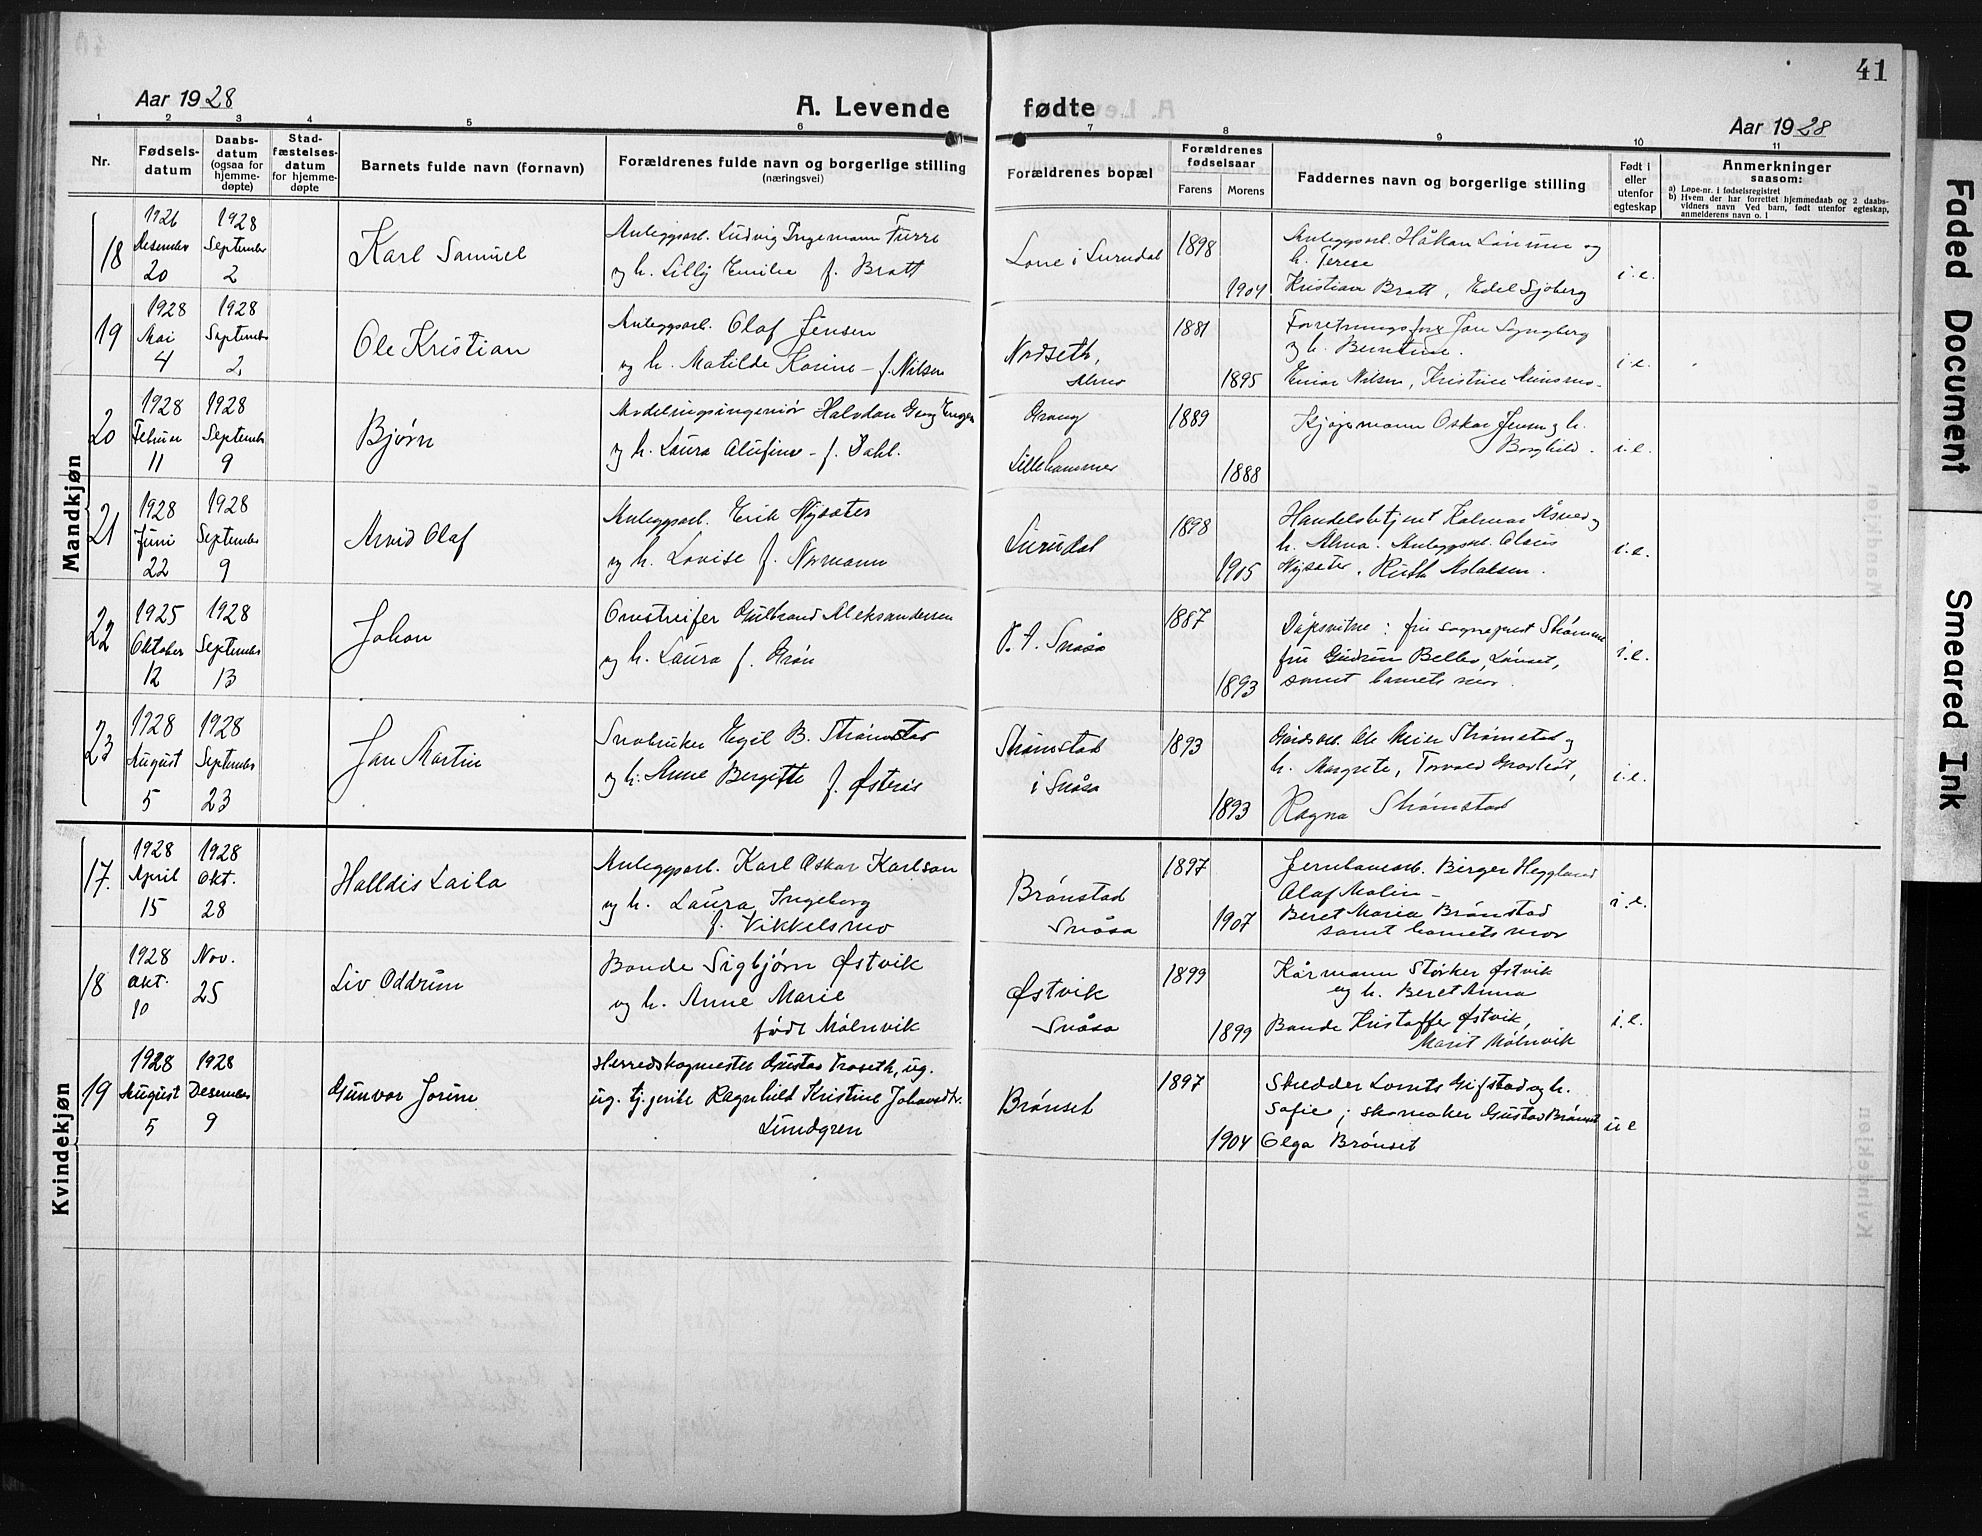 41
Aar 1928
A. Levende fødte
Aar 1928
1 2 3 4 5 6 7 8 9 10 11
Nr.
Fødsels-
datum
Daabs-
datum
(ogsaa for
hjemme-
døpte)
Stad-
fæstelses-
datum
for hjemme-
døpte
Barnets fulde navn (fornavn)
Forældrenes fulde navn og borgerlige stilling
(næringsvei)
Forældrenes bopæl
Forældrenes
fødselsaar
Farens Morens
Faddernes navn og borgerlige stilling
Født i
eller
utenfor
egteskap
Anmerkninger
saasom:
a) Løpe-nr. i fødselsregistret
b) Hvem der har forrettet hjemmedaab og 2 daabs-
vidners navn Ved barn, født utenfor egteskap,
anmelderens navn o. l
Mandkjøn
18
1926
Desember
20
1928
September
2
Karl Samuel
Anleggsarb. Ludvig Ingemann Furre
og h. Lilly Emilie f. Bratt
i Lurudal
1898
1904
Anleggsarb. Håkon og
h. Terese
Kristian Bratt, Edel Sjøberg
i.e.
19
1928
Mai
4
1928
September
2
Ole Kristian
Anleggsarb. Olaf Jensen
og h. Matilde Karine f. Nilsen
Nordseth,
1881
1895
Jon
og h. Berntine.
Einar Nilsen, Kristine
i.e.
20
1928
Februar
11
1928
September
9
Bjørn
Avdelingsingeniør Halvdan Georg
og h. Laura f. Dahl.
Lillehammer
1889
1888
Kjøpmann Oskar Jensen og h.
Borghild.
i.e.
21
1928
Juni
22
1928
September
9
Arvid Olaf
Anleggsarb. Erik Nysæter
og h. Lovise f. Normann
Lurudal
1898
1905
Handelsbetjent Kalmar og
h. Alma. Anleggsarb. Claus
Nysæter, Ruth Aslaksen.
i.e.
22
1925
Oktober
12
1928
September
13
Johan
Omstreifer Gulbrand Aleksandersen
og h. Laura f. Grøn
P. t. Snåsa
1887
1893
Dåpsvitne: fru sogneprest Strømme
fru Gudrun Belbo, Lønset,
samt barnets mor.
i.e.
23
1928
August
5
1928
September
23
Jan Martin
Småbruker Egil B. Strømstad
og h. Anne Bergitte f. Østerås
Strømstad
i Snåsa
1893
1893
Gårdsarb. Ole Meier Strømstad og
h. Margrete, Torvald
Ragna Strømstad
i.e.
Kvindekjøn
17.
1928
April
15
1928
Okt.
28
Halldis Laila
Anleggsarb. Karl Oskar Karlson
og h. Laura Ingeborg
f. Vikkelsmo
Brønstad
Snåsa
1897
1907
Jernbanearb. Birger Heggland
Olaf Malin
Beret Maria Brønstad
samt barnets mor
i.e.
18
1928
Okt.
10
Nov.
25
Liv Oddrun
Bonde Sigbjørn Østvik
og h. Anne Marie
født Mølnvik
Østvik
Snåsa
1899
1899
Kårmann Størker Østvik
og h. Beret Anna
Bonde Kristoffer Østvik,
Marit Mølnvik
i.e.
19
1928
August
5
1928
Desember
9
Gunvor Jorun
Herredskogmester Gustav Traseth, ug.
ug. tj.jente Ragnhild Kristine Johansdtr.
Lundgren
Brønset
1897
1904
Skredder Lorents Gifstad og h.
Sofie; skomaker Gustav Brønset
Olga Brønset
u e
Faded Document
Smeared Ink